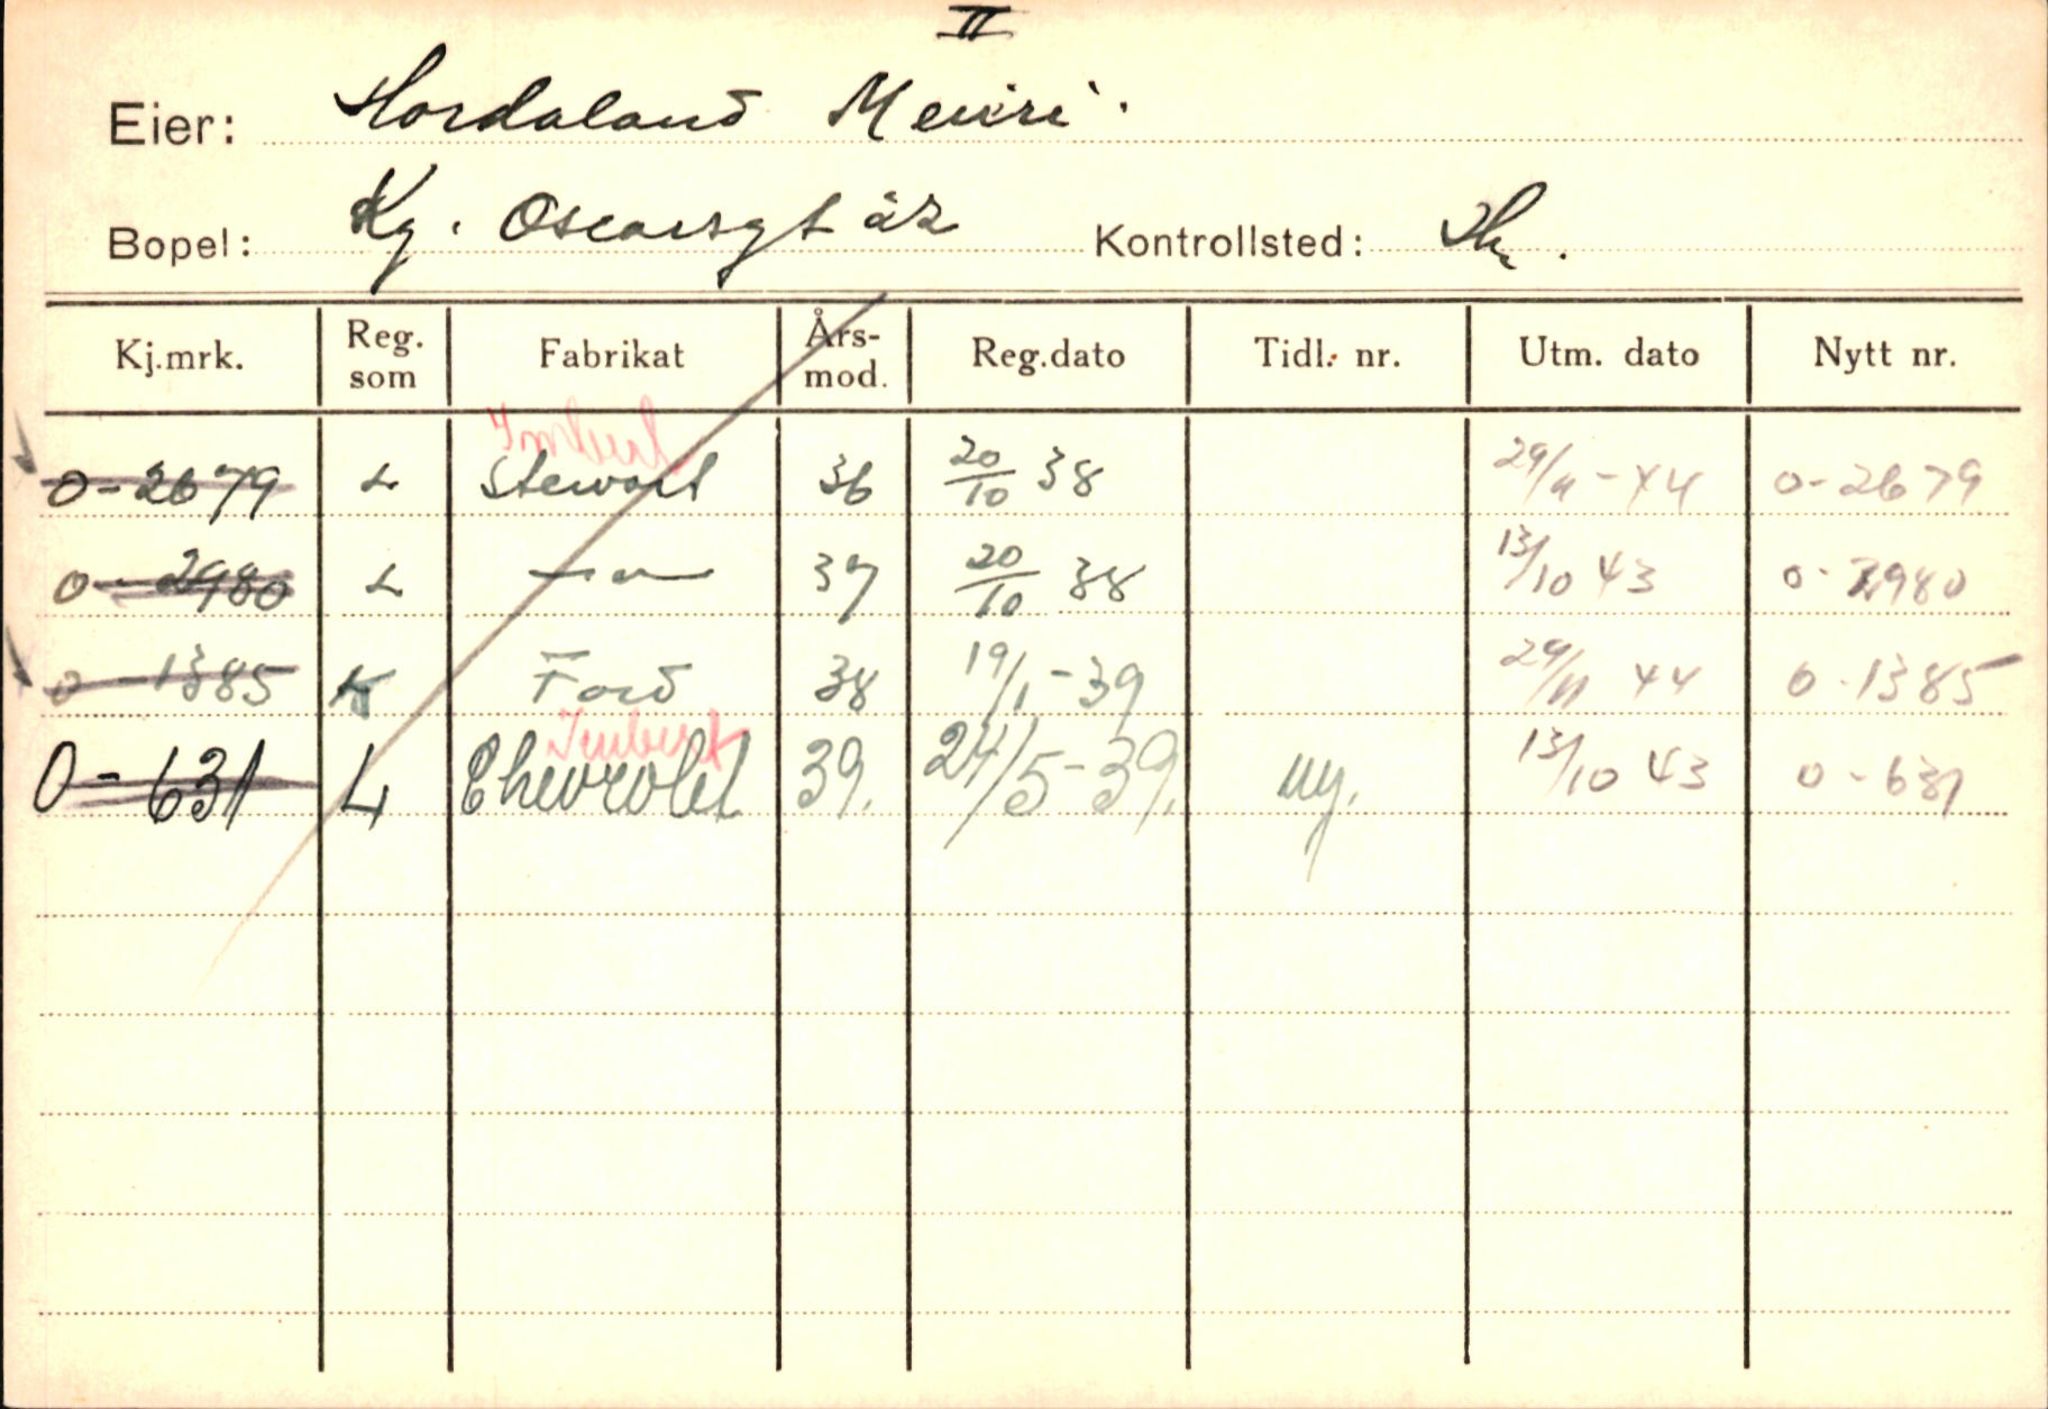 II
Eier: Hordaland Meieri.
Bopel: Kg. Oscarsgt Kontrollsted:
Kj.mrk. Reg. som Fabrikat Års-mod. Reg.dato Tidl. nr. Utm. dato Nytt nr.
Imbert
O-2679 L Stewart 36 20/10 38 29/11-44 O-2679
O-2980 L —"— 37 20/10 38 13/10 43 O-2980
O-1385 K Ford 38 19/1-39 29/11 44 O-1385
Imbert
O-631 L Chevrolet 39. 24/5-39. ny. 13/10 43 O-631